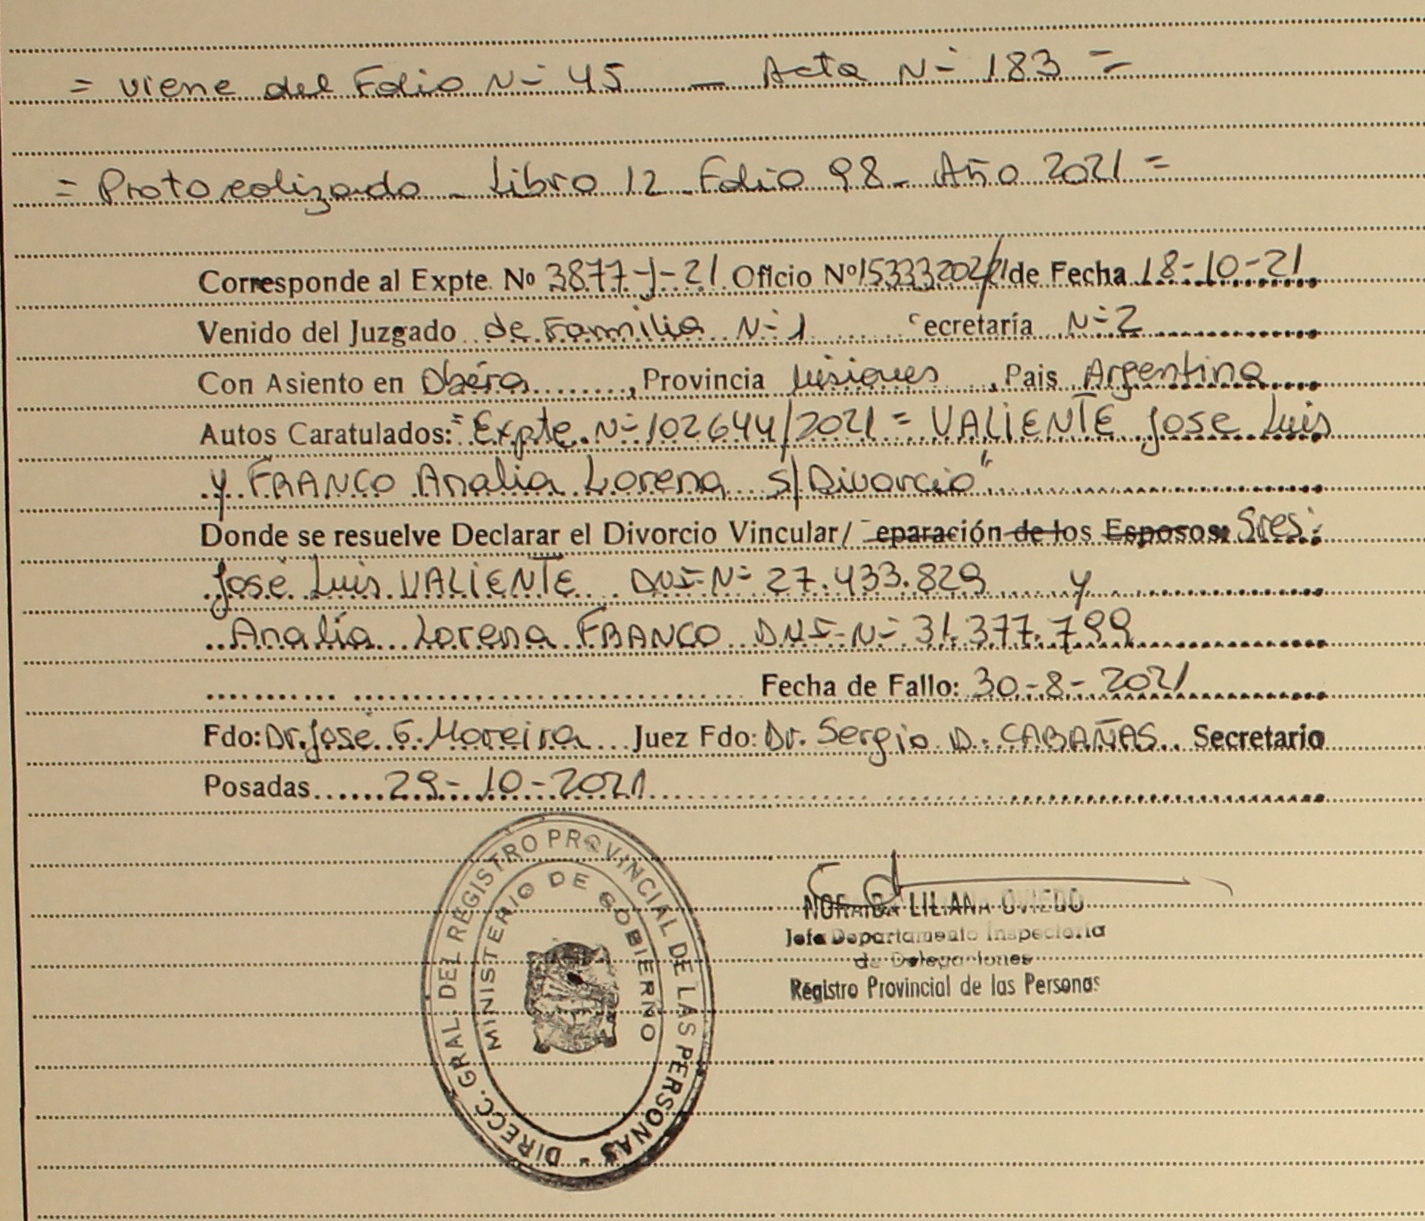 = viene del Folio N- 45 — Acta N- 183 =
= Protocolizado - Libro 12 - Folio 98 - Año 2021 =
Corresponde al Expte. Nº 3877-J-21 Oficio Nº 15333 2021 de Fecha 18-10-21
Venido del Juzgado de Familia N- 1 ecretaría N- 2
Con Asiento en Oberá, Provincia Misiones, Pais Argentina
Autos Caratulados: "Expte. N- 102644/2021 = VALIENTE Jose Luis
y FRANCO Analia Lorena s/Divorcio"
Donde se resuelve Declarar el Divorcio Vincular/ eparación de los Esposos: Sres:
José Luis VALIENTE DNI-N- 27.433.829 y
Analía Lorena FRANCO DNI-N- 31.377.799
Fecha de Fallo: 30-8-2021
Fdo: Dr. José G. Moreira Juez Fdo: Dr. Sergio D. CABAÑAS Secretario
Posadas 29-10-2021
DIRECC. GRAL. DEL REGISTRO PROVINCIAL DE LAS PERSONAS -
MINISTERIO DE GOBIERNO
LILIANA OVIEDO
Jefa Departamento Inspectoria
de Delegaciones
Registro Provincial de las Personas